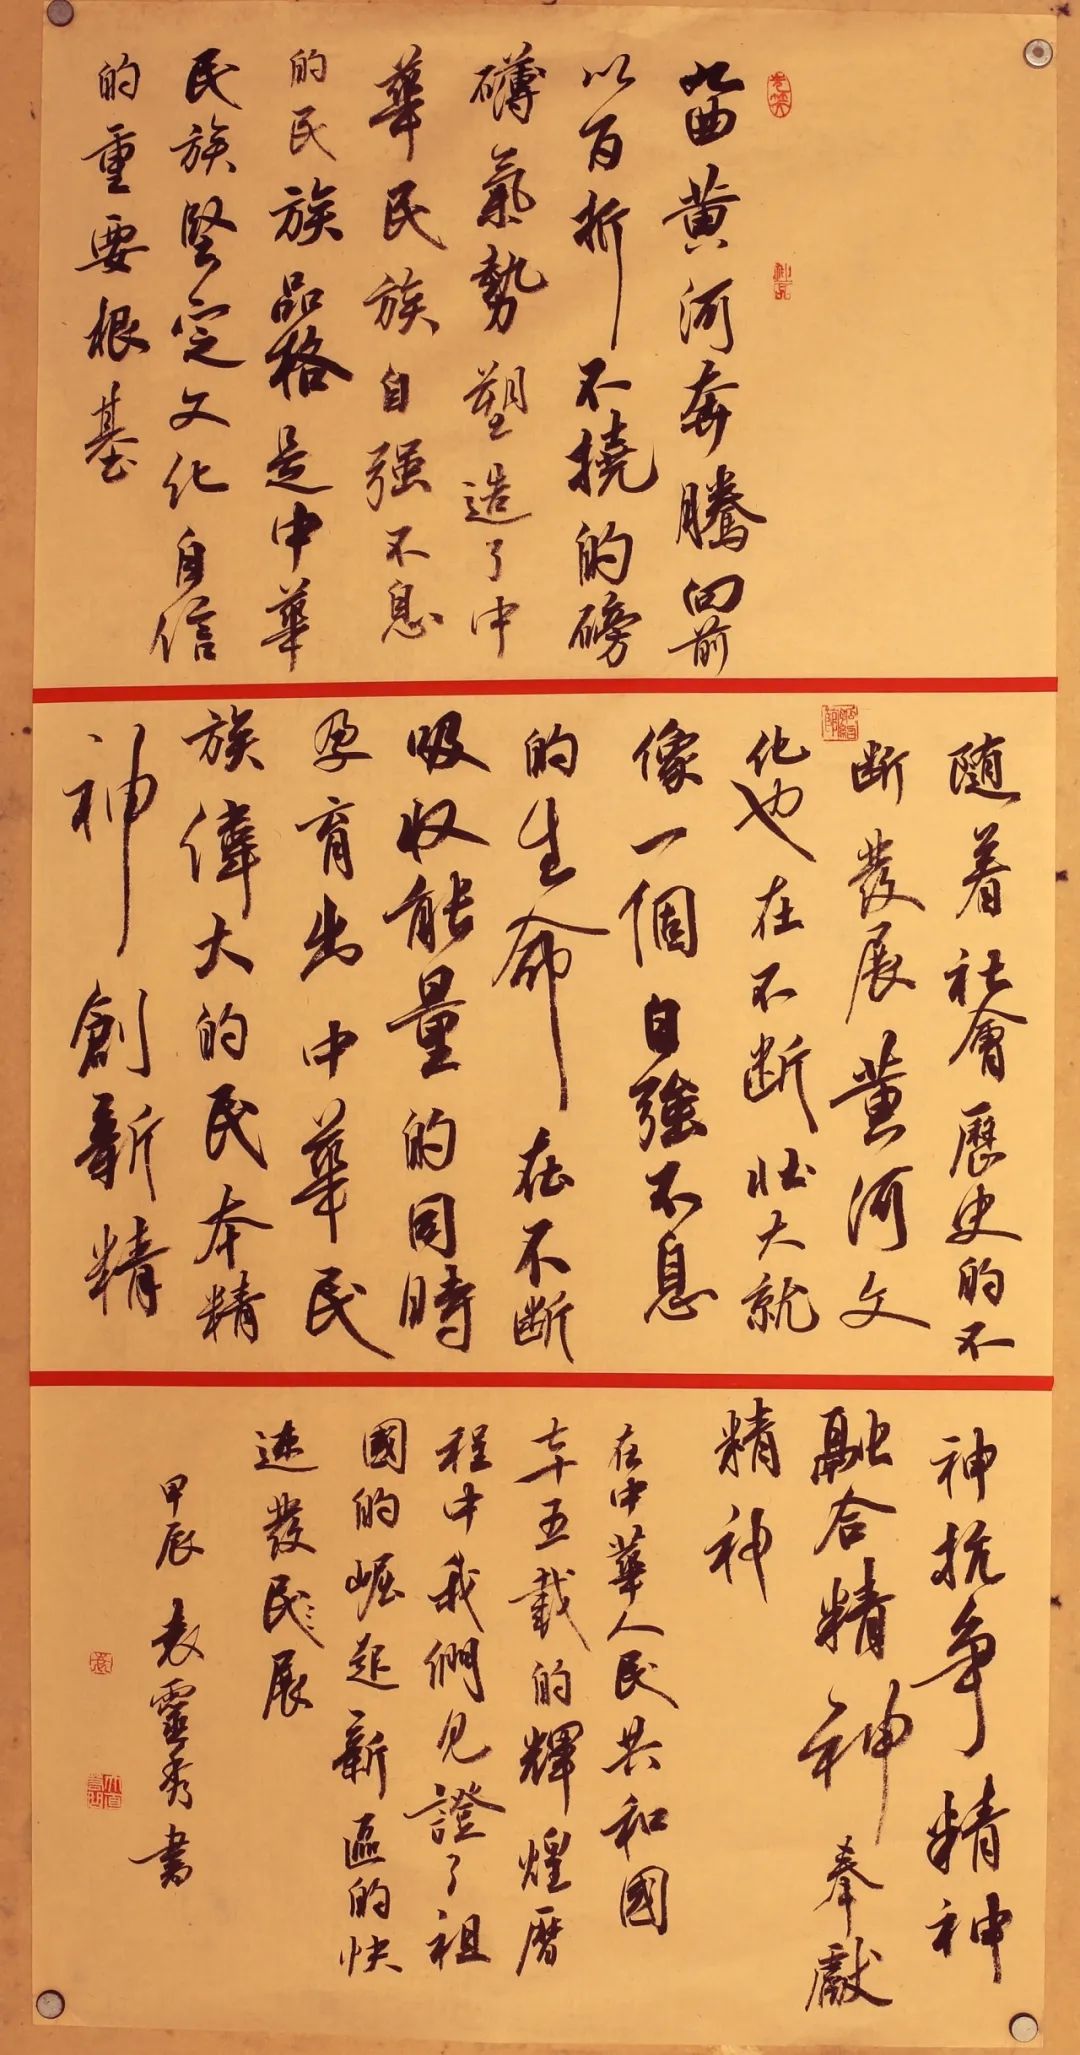 九曲黄河奔腾向前
以百折不撓的磅
礴氣勢塑造了中
華民族自强不息
的民族品格是中華
民族堅定文化自信
的重要根基
随着社會歷史的不
断發展黄河文
化也在不断壮大就
像一個自強不息
的生命在不断
吸收能量的同時
孕育出中華民
族偉大的民本精
神創新精
神抗争精神
融合精神奉獻
精神
在中華人民共和國
七十五載的輝煌曆
程中我們見證了祖
國的崛起新區的快
速發展
甲辰袁靈秀書